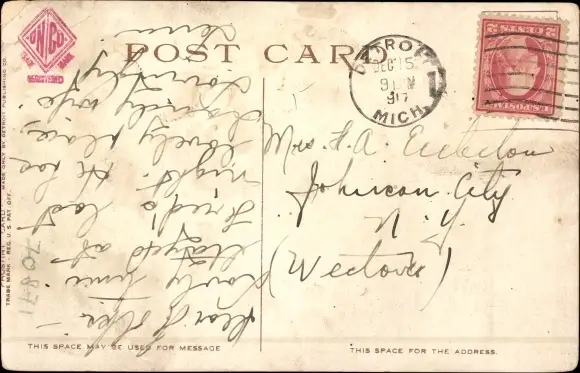 UNICU
TRADE MARK
REGISTERED
POST CARD
DETROIT
DEC 15
9 PM
917
MICH.
2 CENTS 2
U.S. POSTAGE
Mrs.
Johnson City
N. Y.
(Westover)
Dear
Lovely time
Stayed at
Fred's last
night. He has
lovely place,
& wife.
PHOSTINT CARD MADE ONLY BY DETROIT PUBLISHING CO.
TRADE MARK - REG. U.S. PAT. OFF.
70871
THIS SPACE MAY BE USED FOR MESSAGE
THIS SPACE FOR THE ADDRESS.